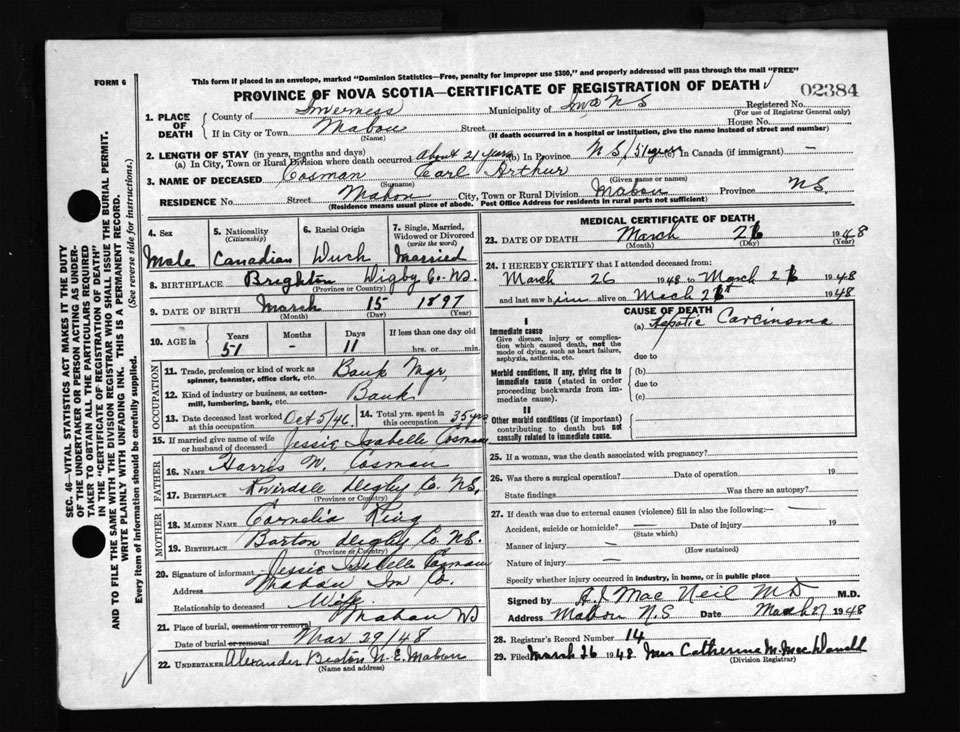 FORM 6
This form if placed in an envelope, marked "Dominion Statistics—Free, penalty for improper use $300," and properly addressed will pass through the mail "FREE"
PROVINCE OF NOVA SCOTIA—CERTIFICATE OF REGISTRATION OF DEATH
02384
1. PLACE OF DEATH
County of Inverness Municipality of Inv. NS Registered No.
(For use of Registrar General only)
If in City or Town Mabou Street House No.
(Name) (If death occurred in a hospital or institution, give the name instead of street and number)
2. LENGTH OF STAY (in years, months and days)
(a) In City, Town or Rural Division where death occurred about 21 years (b) In Province NS/51 years (c) In Canada (if immigrant) —
3. NAME OF DECEASED Cosman Carl Arthur
(Surname) (Given name or names)
RESIDENCE No. Street Mabou City, Town or Rural Division Mabou Province NS.
(Residence means usual place of abode. Post Office Address for residents in rural parts not sufficient)
4. Sex
Male
5. Nationality
(Citizenship)
Canadian
6. Racial Origin
7. Single, Married, Widowed or Divorced
(write the word)
Married
8. BIRTHPLACE Brighton Digby Co. NS.
(Province or Country)
9. DATE OF BIRTH March 15 1897
(Month) (Day) (Year)
10. AGE in
Years 51
Months -
Days 11
If less than one day old
hrs. or min.
OCCUPATION
11. Trade, profession or kind of work as spinner, teamster, office clerk, etc. Bank Mgr,
12. Kind of industry or business, as cotton-mill, lumbering, bank, etc. Bank
13. Date deceased last worked at this occupation Oct 5/46
14. Total yrs. spent in this occupation 35 yrs
15. If married give name of wife or husband of deceased Jessie Isabelle Cosman
FATHER
16. NAME Harris W. Cosman
17. BIRTHPLACE Riverdale Digby Co. NS,
(Province or Country)
MOTHER
18. MAIDEN NAME Cornelia King
19. BIRTHPLACE Barton Digby Co. NS.
(Province or Country)
20. Signature of informant Jessie Isabelle Cosman
Address Mabou Inv Co.
Relationship to deceased Wife
21. Place of burial, cremation or removal Mabou NS
Date of burial or removal Mar 29/48
22. UNDERTAKER Alexander Beaton N.E. Mabou
(Name and address)
MEDICAL CERTIFICATE OF DEATH
23. DATE OF DEATH March 26 1948
(Month) (Day) (Year)
24. I HEREBY CERTIFY that I attended deceased from:
March 26 1948 to March 26 1948
and last saw him alive on March 26 1948
CAUSE OF DEATH
I
Immediate cause
Give disease, injury or complication which caused death, not the mode of dying, such as heart failure, asphyxia, asthenia, etc.
(a) Hepatic Carcinoma
due to
Morbid conditions, if any, giving rise to immediate cause (stated in order proceeding backwards from immediate cause).
(b)
due to
(c)
II
Other morbid conditions (if important) contributing to death but not causally related to immediate cause.
25. If a woman, was the death associated with pregnancy?
26. Was there a surgical operation? Date of operation 19
State findings Was there an autopsy?
27. If death was due to external causes (violence) fill in also the following:— —
Accident, suicide or homicide? — Date of injury 19
(State which)
Manner of injury —
(How sustained)
Nature of injury —
Specify whether injury occurred in industry, in home, or in public place
Signed by A.J. MacNeil MD M.D.
Address Mabou N.S Date March 27 1948
28. Registrar's Record Number 14
29. Filed March 26 1948 Mrs Catherine M. MacDonell
(Division Registrar)
SEC. 46—VITAL STATISTICS ACT MAKES IT THE DUTY
OF THE UNDERTAKER OR PERSON ACTING AS UNDER-
TAKER TO OBTAIN ALL THE PARTICULARS REQUIRED
IN THE "CERTIFICATE OF REGISTRATION OF DEATH"
AND TO FILE THE SAME WITH THE DIVISION REGISTRAR WHO SHALL ISSUE THE BURIAL PERMIT.
WRITE PLAINLY WITH UNFADING INK. THIS IS A PERMANENT RECORD.
Every item of information should be carefully supplied. (See reverse side for instructions.)